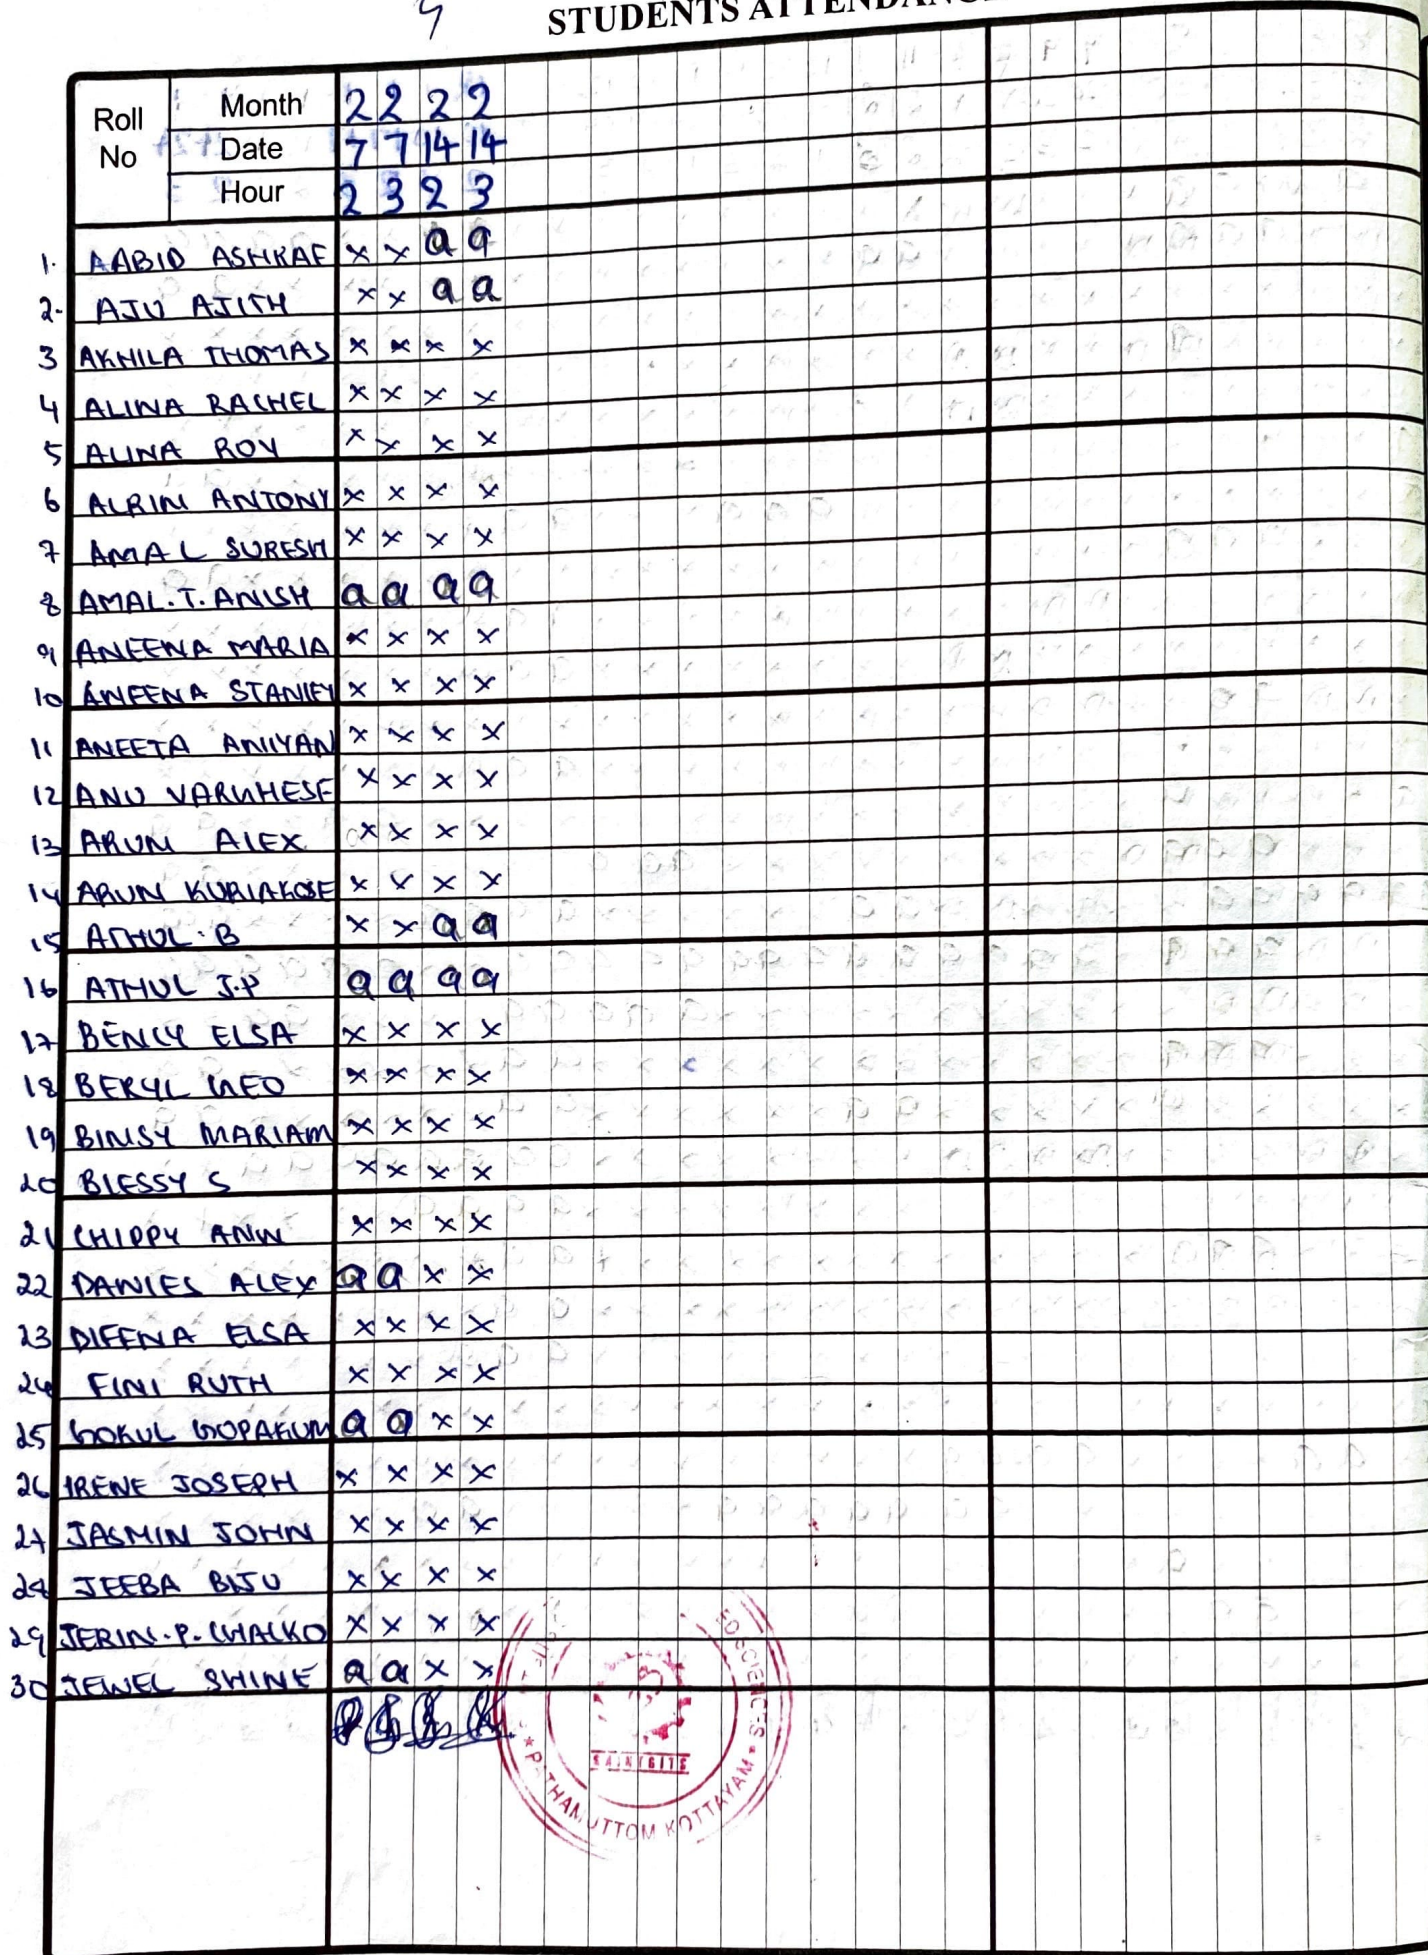 4 STUDENTS
Roll No
Month 2 2 2 2
Date 7 7 14 14
Hour 2 3 2 3
1. AABID ASHRAF x x a a
2. AJU AJITH x x a a
3 AKHILA THOMAS x x x x
4 ALINA RACHEL x x x x
5 ALINA ROY x x x x
6 ALBIN ANTONY x x x x
7 AMAL SURESH x x x x
8 AMAL.T.ANISH a a a a
9 ANEENA MARIA x x x x
10 ANEENA STANLEY x x x x
11 ANEETA ANIYAN x x x x
12 ANU VARGHESE x x x x
13 ARUN ALEX x x x x
14 ARUN KURIAKOSE x x x x
15 ATHUL.B x x a a
16 ATHUL J.P a a a a
17 BENCY ELSA x x x x
18 BERYL GEO x x x x
19 BINSY MARIAM x x x x
20 BLESSY S x x x x
21 CHIPPY ANN x x x x
22 DANIES ALEX a a x x
23 DIFENA ELSA x x x x
24 FINI RUTH x x x x
25 GOKUL GOPAKUM a a x x
26 IRENE JOSEPH x x x x
27 JASMIN JOHN x x x x
28 JEEBA BIJU x x x x
29 JERIN.P.CHACKO x x x x
30 JEWEL SHINE a a x x
SAINTGITS
PATHAMUTTOM KOTTAYAM